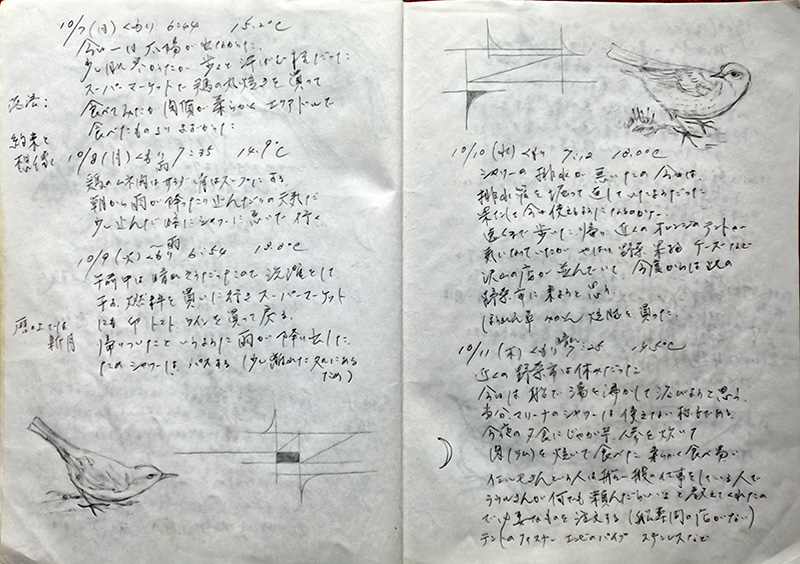 10/7(日) くもり 6:44 15.2℃
今日一日は太陽が出なかった
少し肌寒かったが 歩くと汗ばむ程だった
スーパーマーケットで鶏の丸焼きを買って
食べてみたが肉質が柔らかく
食べたものよりよかった
約束と
想像
10/8(月) くもり 雨 7:35 14.9℃
鶏のムネ肉は 骨はスープにする
朝から雨が降ったり止んだりの天気だ
少し止んだ時にシャワーに急いで行く
10/9(火) くもり 雨 6:54 18.0℃
午前中は 洗濯をして
干す 燃料を買いに行き スーパーマーケット
にて 卵 トマト ワインを買って戻る
帰りついたというように雨が降り出した
ためシャワーはパスする (少し離れた処にある
ため)
暦の上では
新月
10/10(水) くもり 7:12 18.0℃
シャワーの排水が悪いため今日は
排水管を掘って直していたようだった
果たして今日使えるようになるのか
遠くまで歩いた帰り 近くのオレンジのテントが
気になっていたが やはり野菜 果物 チーズなど
沢山の店が並んでいて 今度からは此の
野菜市に来ようと思う
ほうれん草 みかん を買った
10/11(木) くもり 7:25 14.5℃
近くの野菜市は休みだった
今日は船で湯を沸かして浴びようと思う
当分マリーナのシャワーは使えない様子である
今夜の夕食にじゃが芋、人参を炊いて
肉(ラム)を焼いて食べた 柔らかく食べ易い
さんという人は船一般の仕事をしている人で
さんが何でも頼んだらいいよと教えてくれたの
で必要なものを注文する (船専門の店がない)
テントのファスナー エンビのパイプ ステンレスなど